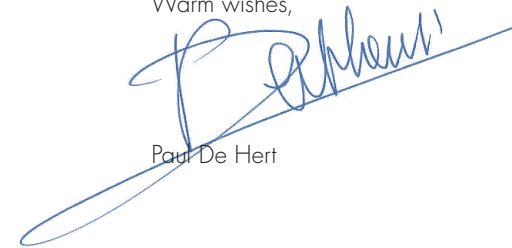 Warm wishes,
Paul De Hert